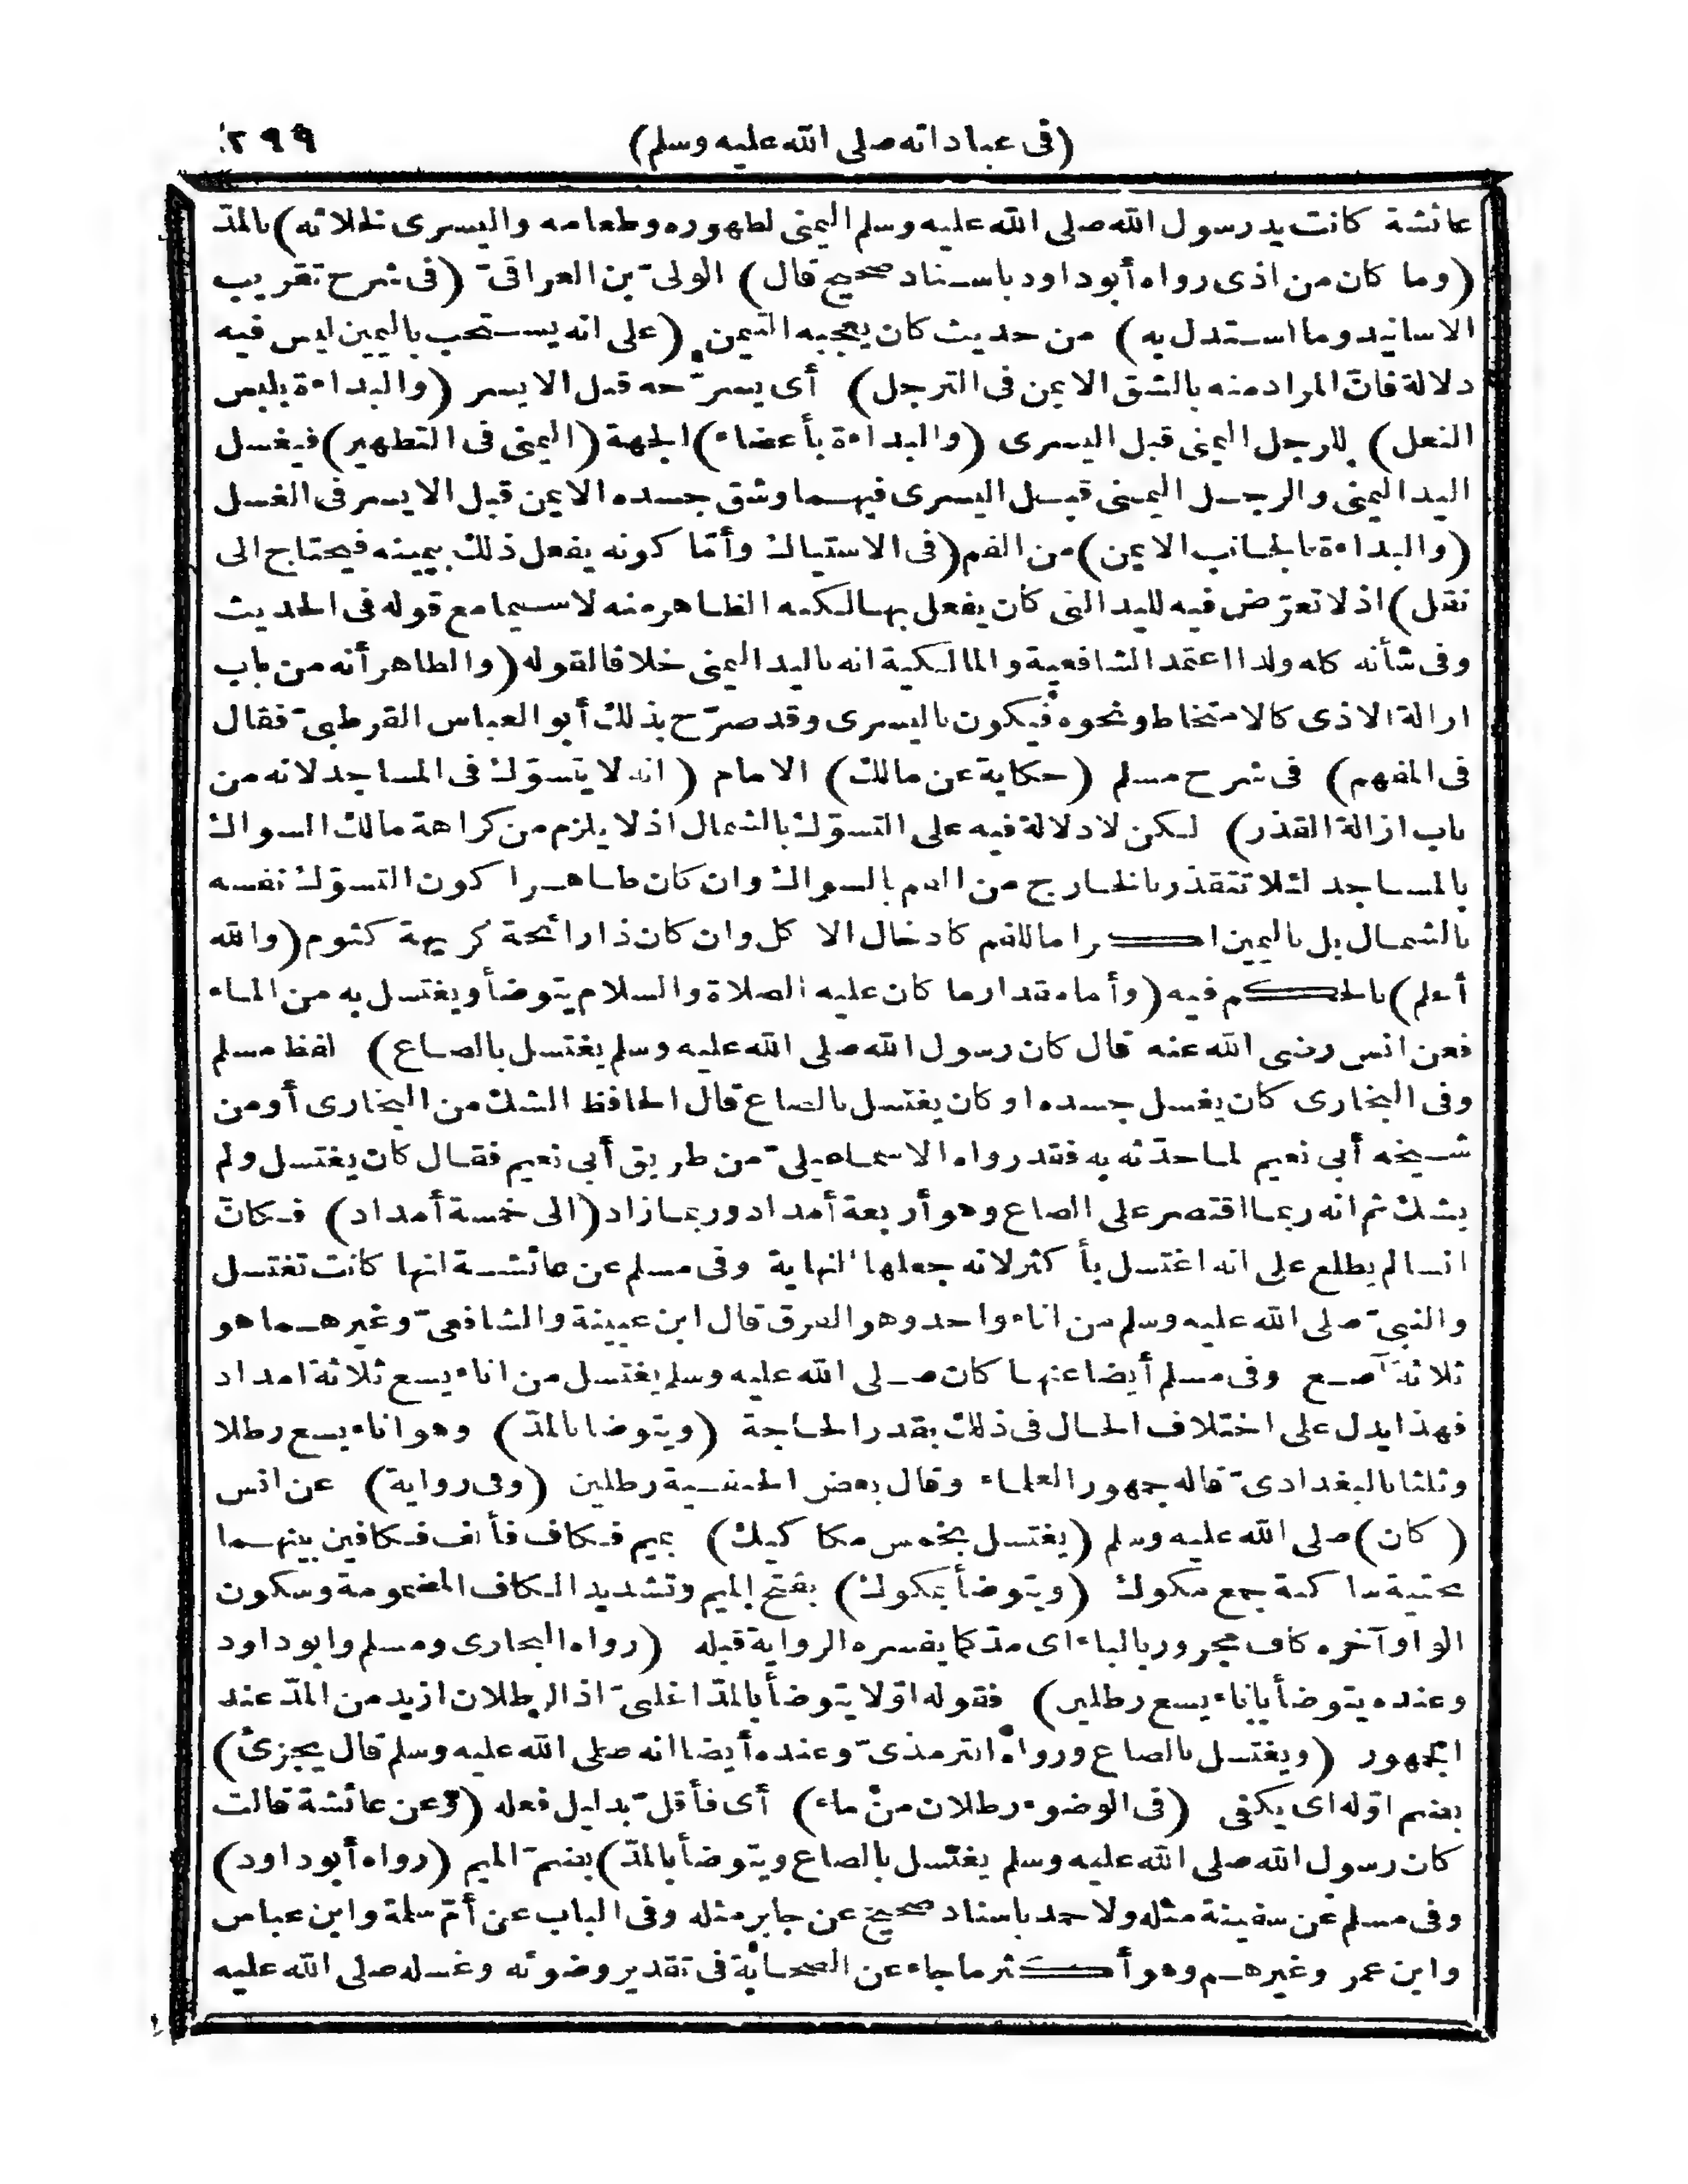 (فى عباداته صلى الله عليه وسلم) ٢٩٩
عائشة كانت يد رسول الله صلى الله عليه وسلم اليمنى لطهوره وطعامه واليسرى لخلائه) بالمدّ
(وما كان من اذى رواه أبو داود باسناد صحيح قال) الولىّ بن العراقىّ (فى شرح تقريب
الاسانيد وما استدل به) من حديث كان يعجبه التيمن (على انه يستحب باليمين ليس فيه
دلالة فانّ المراد منه بالشق الايمن فى الترجل) أى يسرّحه قبل الايسر (والبداءة بلبس
النعل) للرجل اليمنى قبل اليسرى (والبداءة بأعضاء) الجهة (اليمنى فى التطهير) فيغسل
اليد اليمنى والرجل اليمنى قبل اليسرى فيهما وشق جسده الايمن قبل الايسر فى الغسل
(والبداءة بالجانب الايمن) من الفم (فى الاستياك وأمّا كونه يفعل ذلك بيمينه فيحتاج الى
نقل) اذ لا تعرّض فيه لليد التى كان يفعل بها لكنه الظاهر منه لا سيما مع قوله فى الحديث
وفى شأنه كله ولذا اعتمد الشافعية والمالكية انه باليد اليمنى خلافا لقوله (والظاهر أنه من باب
ازالة الاذى كالامتخاط ونحوه فيكون باليسرى وقد صرّح بذلك أبو العباس القرطبىّ فقال
فى المفهم) فى شرح مسلم (حكاية عن مالك) الامام (انه لا يتسوّك فى المساجد لانه من
باب ازالة القذر) لكن لا دلالة فيه على التسوّك بالشمال اذ لا يلزم من كراهة مالك السواك
بالمساجد لئلا تتقذر بالخارج من الفم بالسواك وان كان طاهرا كون التسوّك نفسه
بالشمال بل باليمين اكراما للفم كادخال الاكل وان كان ذا رائحة كريهة كثوم (والله
أعلم) بالحكم فيه (وأما مقدار ما كان عليه الصلاة والسلام يتوضأ ويغتسل به من الماء
فعن انس رضى الله عنه قال كان رسول الله صلى الله عليه وسلم يغتسل بالصاع) لفظ مسلم
وفى البخارى كان يغسل جسده او كان يغتسل بالصاع قال الحافظ الشك من البخارى أو من
شيخه أبى نعيم لما حدّثه به فقد رواه الاسماعيلىّ من طريق أبى نعيم فقال كان يغتسل ولم
يشك ثم انه ربما اقتصر على الصاع وهو أربعة أمداد وربما زاد (الى خمسة أمداد) فكانّ
انسا لم يطلع على انه اغتسل بأكثر لانه جعلها النهاية وفى مسلم عن عائشة انها كانت تغتسل
والنبىّ صلى الله عليه وسلم من اناء واحد وهو الفرق قال ابن عيينة والشافعىّ وغيرهما هو
ثلاثة آصع وفى مسلم أيضا عنها كان صلى الله عليه وسلم يغتسل من اناء يسع ثلاثة امداد
فهذا يدل على اختلاف الحال فى ذلك بقدر الحاجة (ويتوضا بالمدّ) وهو اناء يسع رطلا
وثلثا بالبغدادىّ قاله جمهور العلماء وقال بعض الحنفية رطلين (وفى رواية) عن انس
(كان) صلى الله عليه وسلم (يغتسل بخمس مكاكيك) بميم فكاف فألف فكافين بينهما
تحتية ساكنة جمع مكوك (ويتوضأ بمكوك) بفتح الميم وتشديد الكاف المضمومة وسكون
الواو آخره كاف مجرور بالباء اى مدّ كما يفسره الرواية قبله (رواه البخارى ومسلم وابو داود
وعنده يتوضأ باناء يسع رطلين) فقوله اوّلا يتوضأ بالمدّ اغلبىّ اذ الرطلان ازيد من المدّ عند
الجمهور (ويغتسل بالصاع ورواه الترمذىّ وعنده أيضا انه صلى الله عليه وسلم قال يجزئ)
بضم اوّله اى يكفى (فى الوضوء رطلان من ماء) أى فأقلّ بدليل فعله (وعن عائشة قالت
كان رسول الله صلى الله عليه وسلم يغتسل بالصاع ويتوضأ بالمدّ) بضمّ الميم (رواه أبو داود)
وفى مسلم عن سفينة مثله ولاحمد باسناد صحيح عن جابر مثله وفى الباب عن أمّ سلمة وابن عباس
وابن عمر وغيرهم وهو أكثر ما جاء عن الصحابة فى تقدير وضوئه وغسله صلى الله عليه